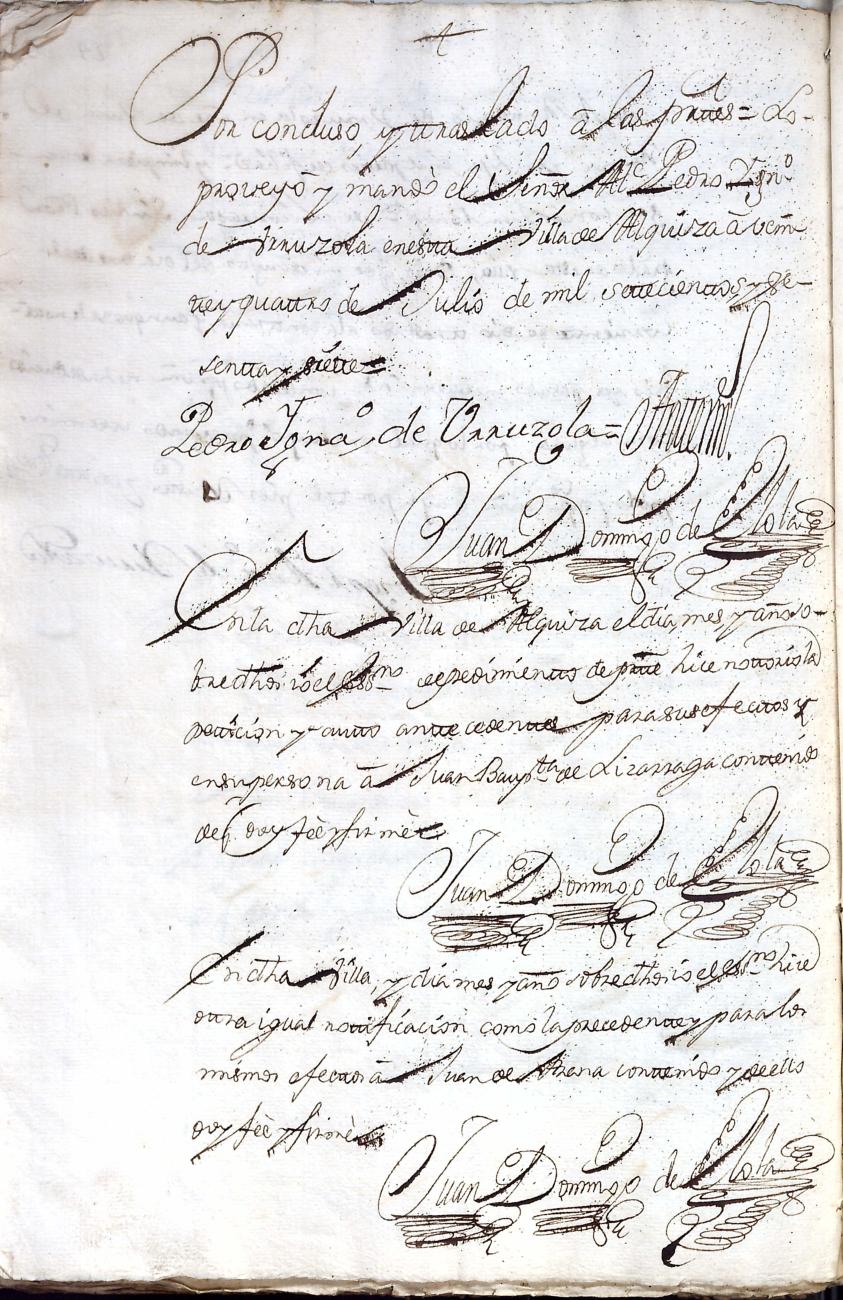 Por concluso, y traslado â las prtes = Lo
proveyô y mandò el Señor Allc Pedro Ignº
de Urruzola en esta Villa de Alquiza â vein
te y quattro de Julio de mil settecienttos y se
sentta y siette =
Pedro Ignaº de Urruzola = Antemi
Juan Domingo de Olo
En la dha Villa de Alquiza el dia, mes y año so
bredhos io el essno de pedimentto de prte hice nottorio la
petticion y autto anttecedenttes para sus efecttos
en su persona â Juan Bapta de Lizarraga contenido
de q doy feè y firmè
Juan Domingo de
En dha Villa, y dia mes y año sobredhos io el essno hice
ottra igual nottificacion como la precedentte y para los
mismos efecttos â Juan de Arana conttenido y de ello
doy feè y firmè
Juan Domingo de